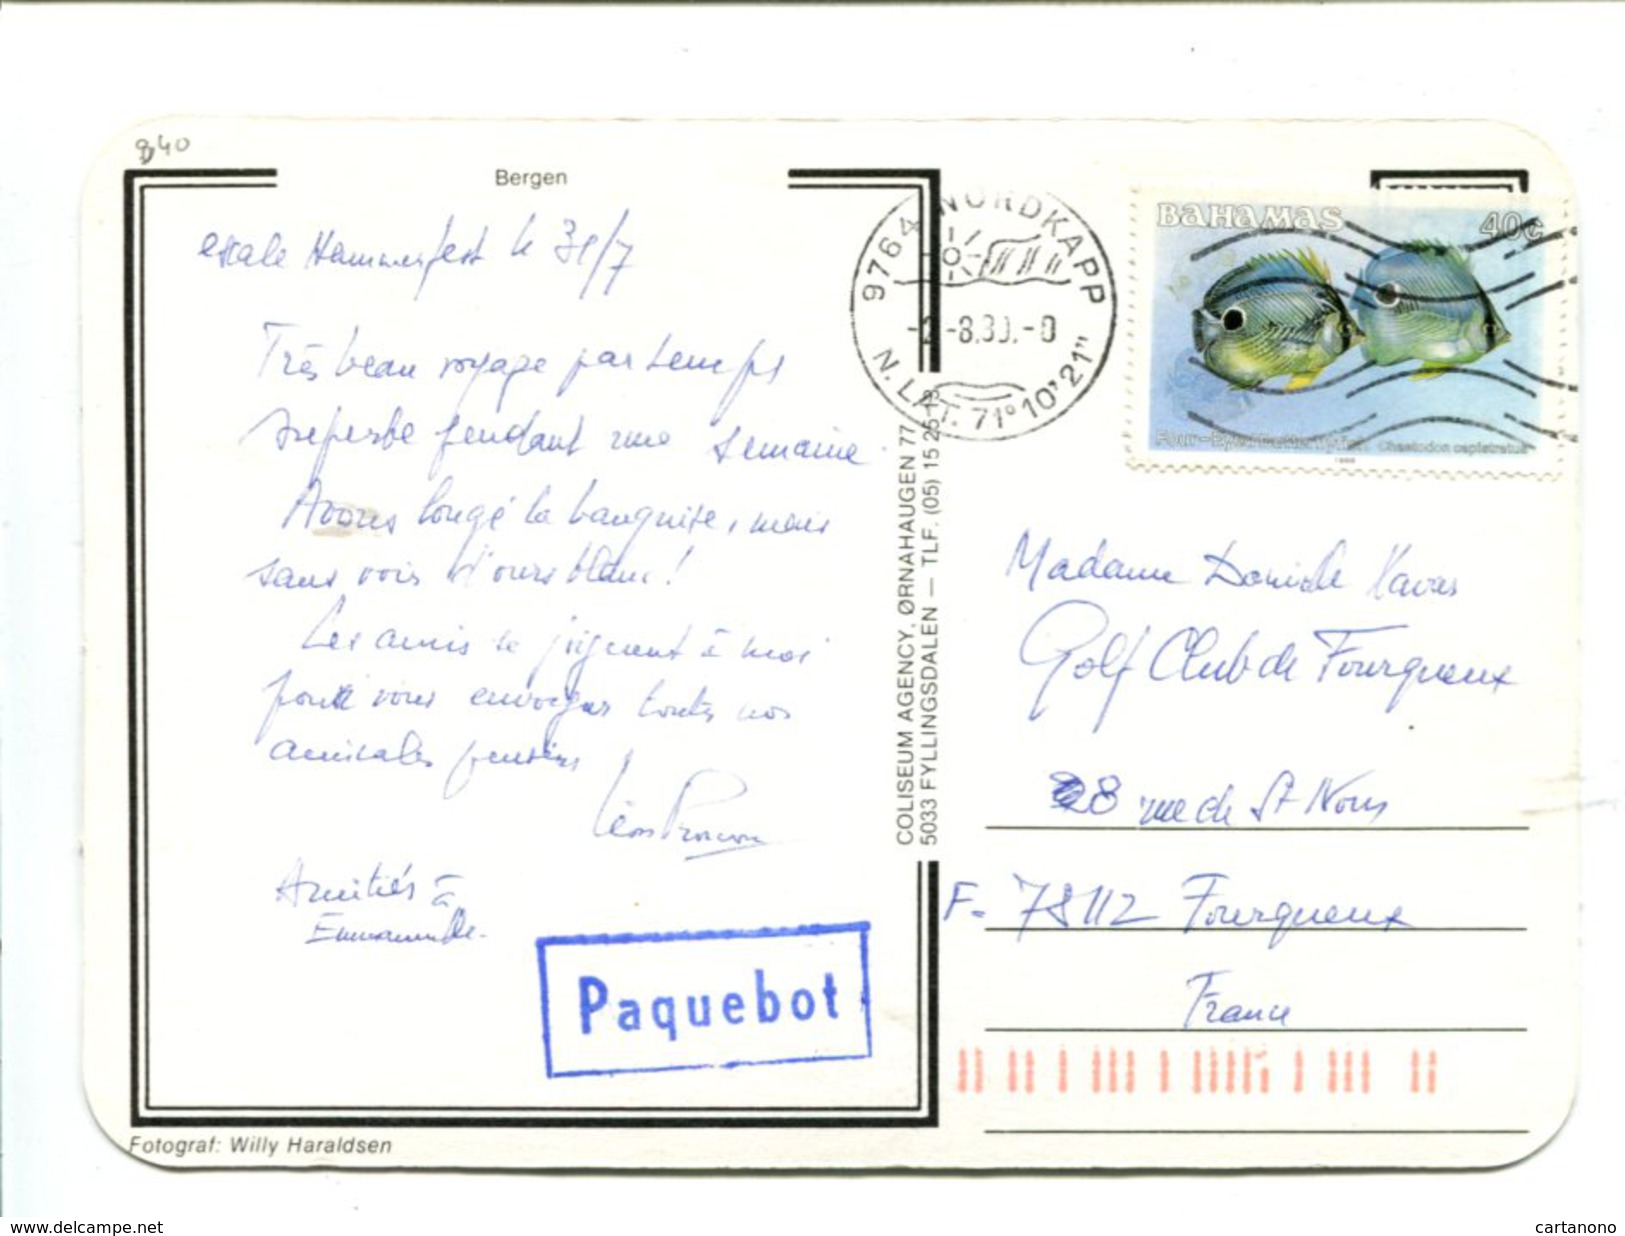 840
Bergen
escale Hammerfest le 31/7
Très beau voyage par temps
superbe pendant une semaine.
Avons longé la banquise, mais
sans voir d'ours blanc!
Les amis se joignent à moi
pour vous envoyer toutes nos
amicales pensées
Léon
Amitiés à
Emmanuelle.
Paquebot
Fotograf: Willy Haraldsen
COLISEUM AGENCY, ØRNAHAUGEN 77
5033 FYLLINGSDALEN — TLF. (05) 15 26
9764 NORDKAPP
-8.90.-0
N. LAT. 71°10'21"
BAHAMAS 40c
Four-Eyed Butterflyfish Chaetodon capistratus
Madame Danièle
Golf Club de Fourqueux
28 rue de St Nom
F- 78112 Fourqueux
France
www.delcampe.net
cartanono